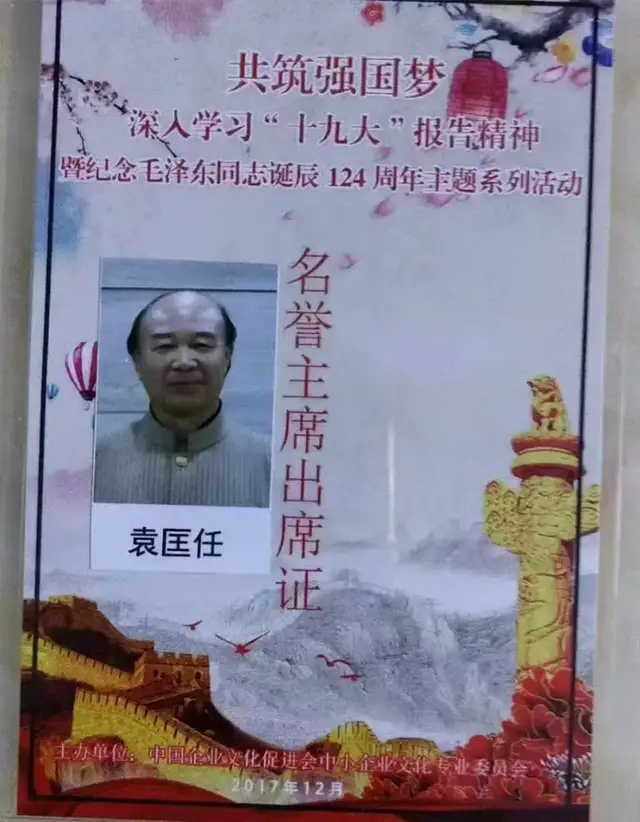 共筑强国梦
深入学习“十九大”报告精神
暨纪念毛泽东同志诞辰124周年主题系列活动
名誉主席出席证
袁匡任
主办单位：中国企业文化促进会中小企业文化专业委员会
2017年12月